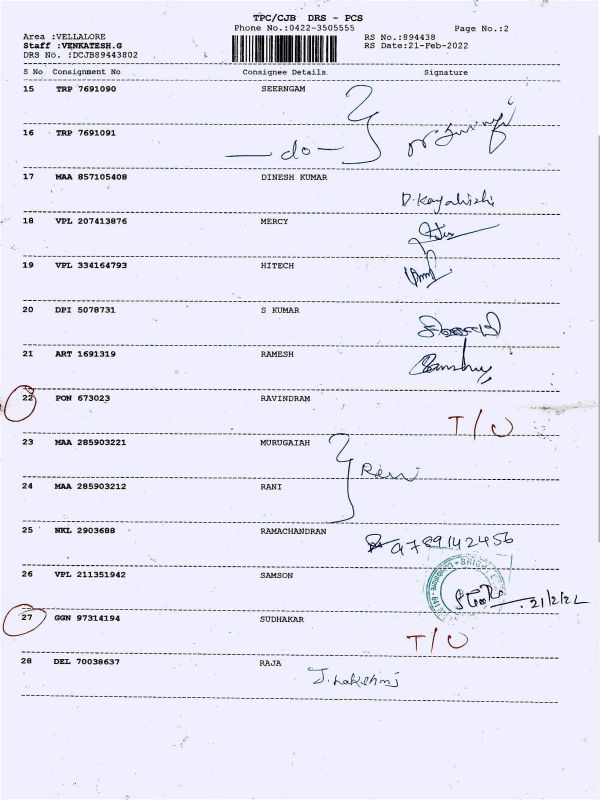 TPC/CJB DRS - PCS
Phone No.:0422-3505555
Page No.:2
Area :VELLALORE
RS No.:894438
Staff :VENKATESH.G
RS Date:21-Feb-2022
DRS No. :DCJB89443802
S No Consignment No Consignee Details Signature
15 TRP 7691090 SEERNGAM
16 TRP 7691091 — do —
17 MAA 857105408 DINESH KUMAR
18 VPL 207413876 MERCY
19 VPL 334164793 HITECH
20 DPI 5078731 S KUMAR
21 ART 1691319 RAMESH
22 PON 673023 RAVINDRAM T/O
23 MAA 285903221 MURUGAIAH
24 MAA 285903212 RANI
25 NKL 2903688 RAMACHANDRAN 9789142456
26 VPL 211351942 SAMSON 21/2/22
27 GGN 97314194 SUDHAKAR T/O
28 DEL 70038637 RAJA J. Lakshmi